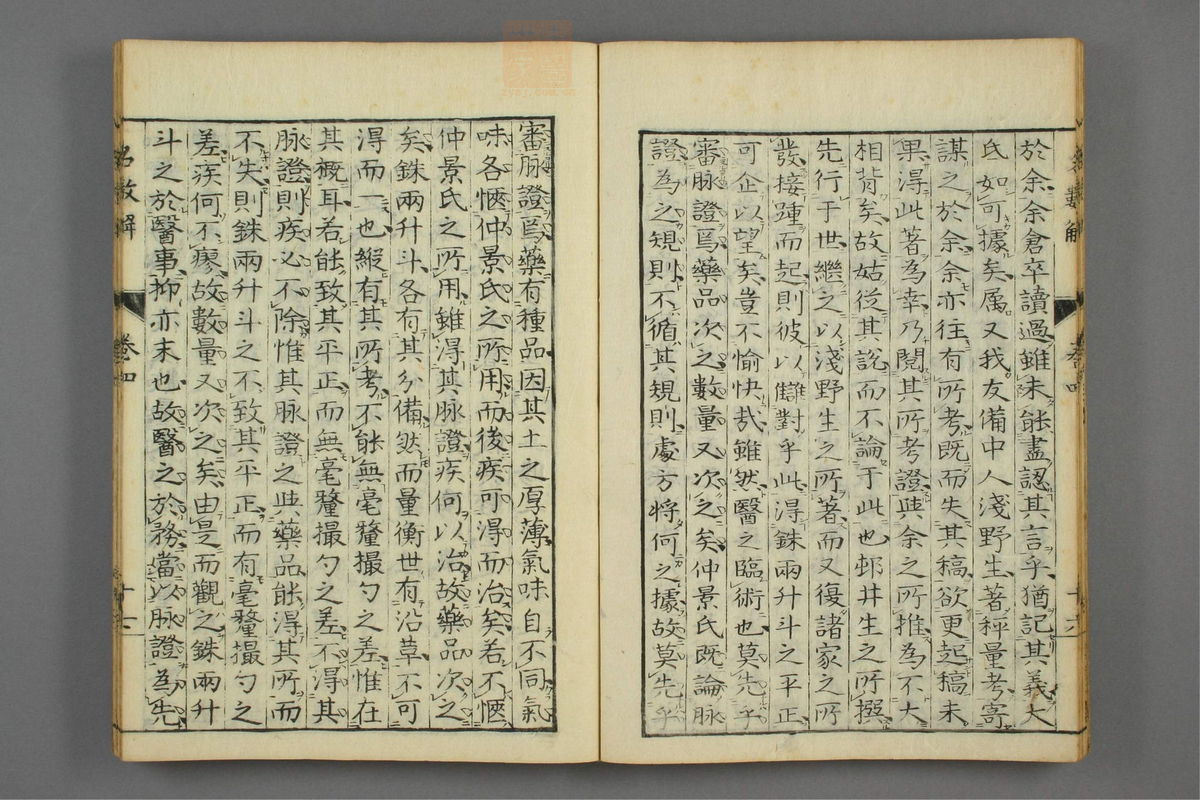 於余余倉卒讀過雖未能盡認其言乎猶記其義大
氏如可據矣属又我友備中人淺野生著秤量考寄
謀之於余余亦往有所考既而失其稿欲更起稿未
果得此著為幸乃閱其所考證與余之所推為不大
相背矣故姑從其說而不論于此也邨井生之所撰
先行于世繼之以淺野生之所著而又復諸家之所
發接踵而起則彼以讎對乎此得銖兩升斗之平正
可企以望矣豈不愉快哉雖然醫之臨術也莫先乎
審脉證焉藥品次之數量又次之矣仲景氏既論脉
證為之規則不循其規則處方將何之據故莫先乎
審脉證焉藥有種品因其土之厚薄氣味自不同氣
味各愜仲景氏之所用而後疾可得而治矣若不愜
仲景氏之所用雖得其脉證疾何以治故藥品次之
矣銖兩升斗各有其分備然而量衡世有沿革不可
得而一也縱有其所考不能無毫釐撮勺之差惟在
其概耳若能致其平正而無毫釐撮勺之差不得其
脉證則疾必不除惟其脉證之與藥品能得其所而
不失則銖兩升斗之不致其平正而有毫釐撮勺之
差疾何不瘳故數量又次之矣由是而觀之銖兩升
斗之於醫事抑亦末也故醫之於務當以脉證為先
名數解
卷四